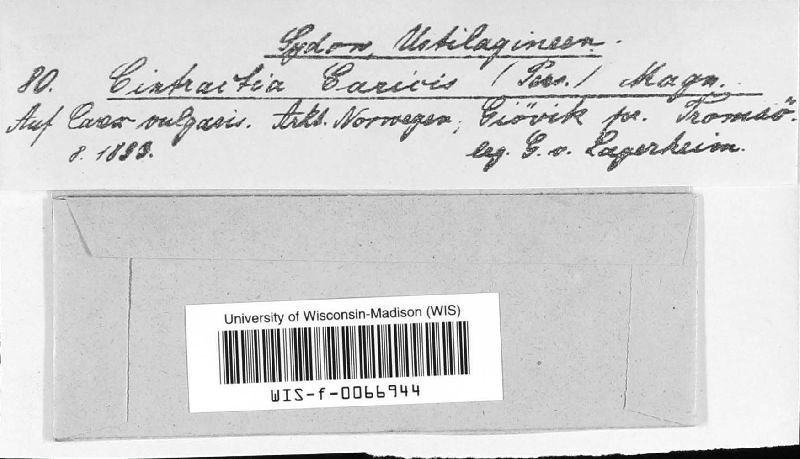 Sydow, Ustilagineen.
80. Cintractia Caricis (Pers.) Magn.
Auf Carex vulgaris. Arkt. Norwegen, Giövik pr. Tromsö.
8. 1893. leg. G. v. Lagerheim.
University of Wisconsin-Madison (WIS)
WIS-f-0066944